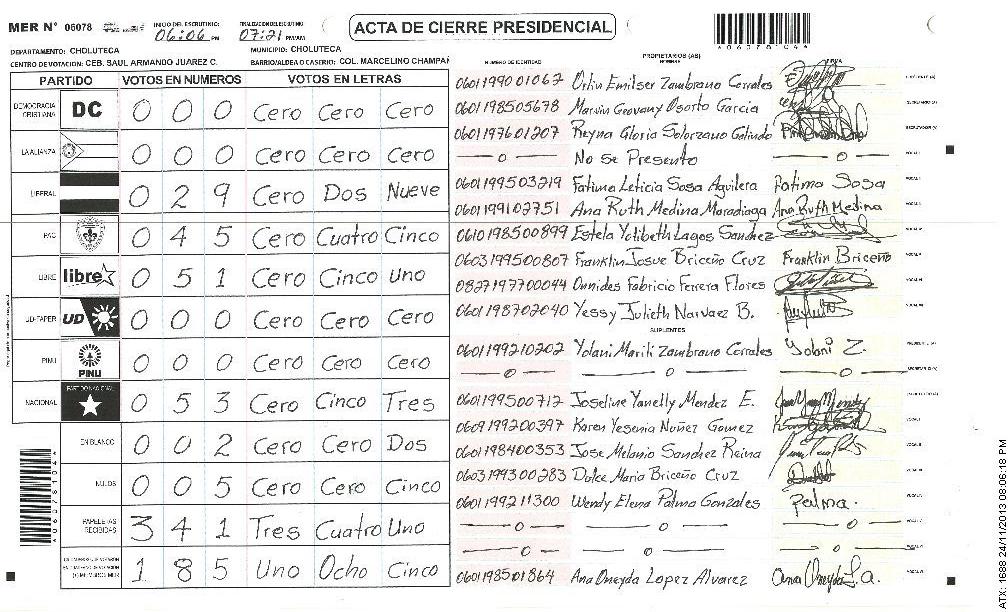 MER N° 06078 INICIO DEL ESCRUTINIO: 06:06 PM FINALIZACION DEL ESCRUTINIO 07:21 PM/AM ACTA DE CIERRE PRESIDENCIAL
*060781044*
DEPARTAMENTO: CHOLUTECA MUNICIPIO: CHOLUTECA
CENTRO DE VOTACION: CEB. SAUL ARMANDO JUAREZ C. BARRIO/ALDEA O CASERIO: COL. MARCELINO CHAMPA
NUMERO DE IDENTIDAD PROPIETARIOS (AS) NOMBRE FIRMA
PARTIDO VOTOS EN NUMEROS VOTOS EN LETRAS
DEMOCRACIA CRISTIANA DC 0 0 0 Cero Cero Cero
LA ALIANZA 0 0 0 Cero Cero Cero
LIBERAL 0 2 9 Cero Dos Nueve
PAC 0 4 5 Cero Cuatro Cinco
LIBRE libre 0 5 1 Cero Cinco Uno
UD-FAPER UD 0 0 0 Cero Cero Cero
PINU PINU 0 0 0 Cero Cero Cero
NACIONAL PARTIDO NACIONAL 0 5 3 Cero Cinco Tres
EN BLANCO 0 0 2 Cero Cero Dos
NULOS 0 0 5 Cero Cero Cinco
PAPELETAS RECIBIDAS 3 4 1 Tres Cuatro Uno
1 8 5 Uno Ocho Cinco
0601199001067 Orlin Emilser Zambrano Corrales
0601198505678 Marvin Geovany Osorto Garcia
0601197601207 Reyna Gloria Solorzano Galindo
—o— No se Presento —o—
0601199503219 Fatima Leticia Sosa Aguilera Fatima Sosa
0601199102751 Ana Ruth Medina Maradiaga Ana Ruth Medina
0610198500899 Estela Yolibeth Lagos Sanchez
0603199500807 Franklin Josue Briceño Cruz Franklin Briceño
0827197700044 Ounides Fabricio Ferrera Flores
0601198702040 Yessy Julieth Narvaez B.
SUPLENTES
0601199210202 Yolani Marili Zambrano Corrales Yolani Z.
—o— —o— —o—
0601199500717 Joseline Yanelly Mendez E.
0609199200397 Karen Yesenia Nuñez Gomez
0601198400353 Jose Melanio Sanchez Reina
0603199300283 Dulce Maria Briceño Cruz
0601199211300 Wendy Elena Palma Gonzales Palma.
—o— —o— —o—
—o— —o— —o—
0601198501864 Ana Oneyda Lopez Alvarez Ana Oneyda L.a.
*060781044*
ATX: 1688 24/11/2013 08:06:18 PM